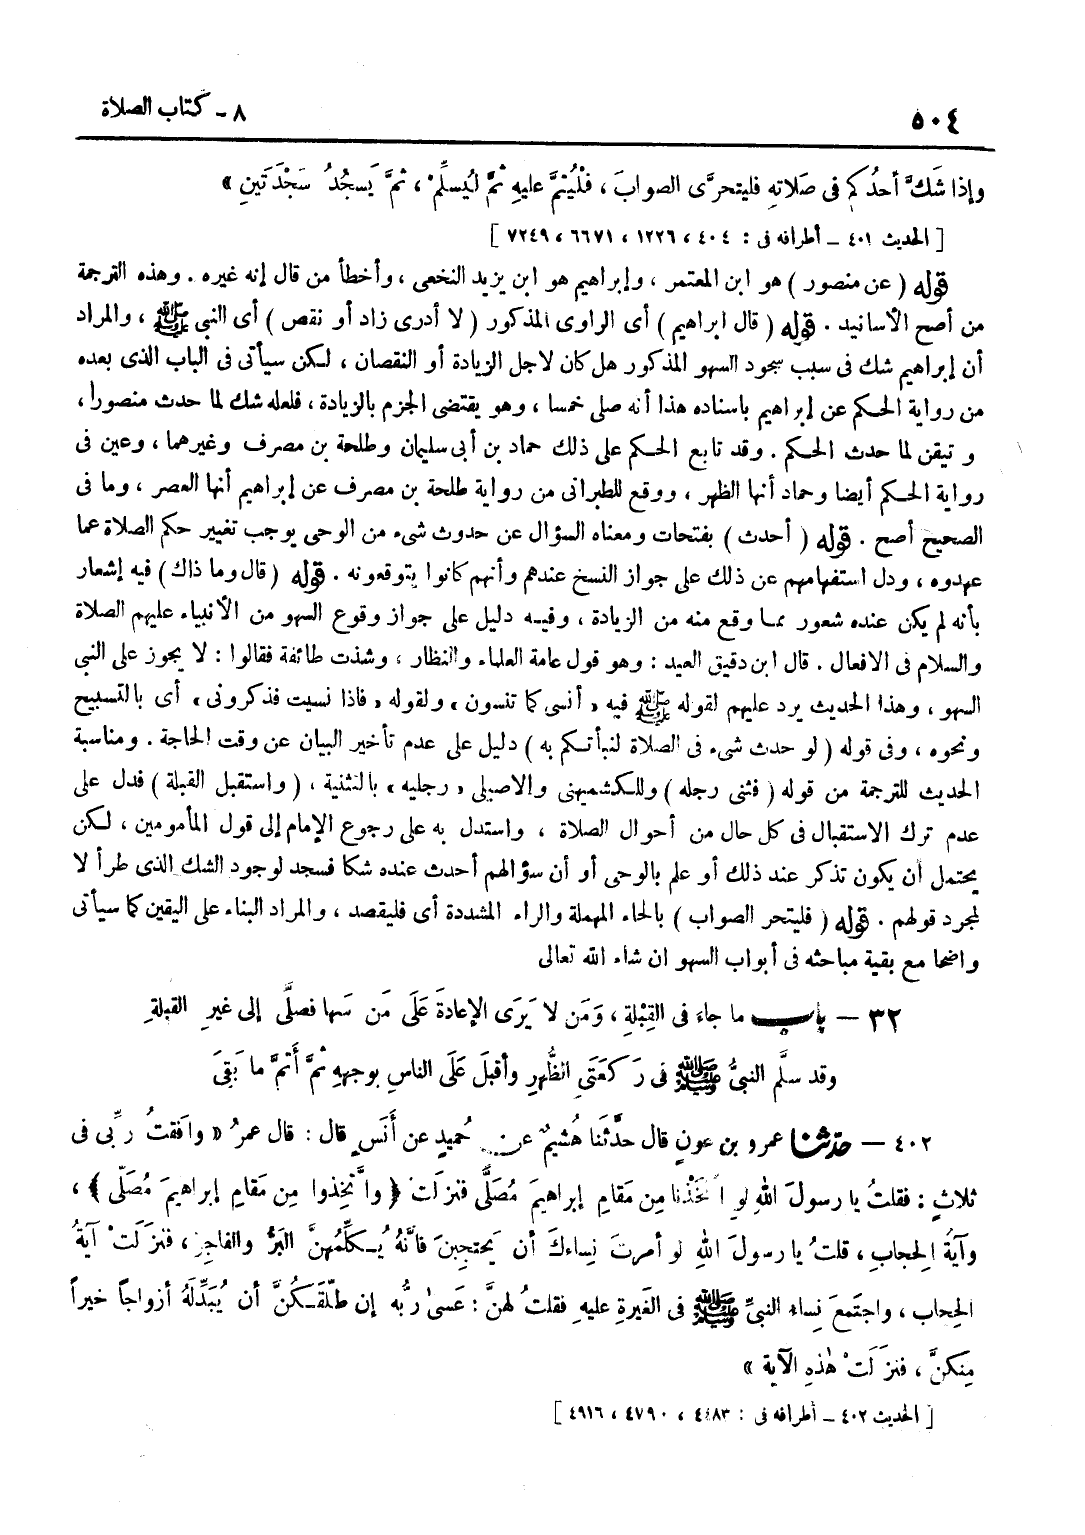 ٥٠٤
٨ - كتاب الصلاة
وإذا شَكَّ أحدُكم فى صَلاتهِ فليتحرَّى الصوابَ ، فلْيُتمَّ عليهِ ثمَّ ليُسلِّمْ ، ثمَّ يَسجُدُ سَجْدَتَينِ »
[ الحديث ٤٠١ - أطرافه فى : ٤٠٤ ، ١٢٢٦ ، ٦٦٧١ ، ٧٢٤٩ ]
قوله ( عن منصور ) هو ابن المعتمر ، وإبراهيم هو ابن يزيد النخعى ، وأخطأ من قال إنه غيره . وهذه الترجمة
من أصح الأسانيد . قوله ( قال ابراهيم ) أى الراوى المذكور ( لا أدرى زاد أو نقص ) أى النبى ﷺ ، والمراد
أن إبراهيم شك فى سبب سجود السهو المذكور هل كان لاجل الزيادة أو النقصان ، لكن سيأتى فى الباب الذى بعده
من رواية الحكم عن إبراهيم باسناده هذا أنه صلى خمسا ، وهو يقتضى الجزم بالزيادة ، فلعله شك لما حدث منصورا ،
و تيقن لما حدث الحكم . وقد تابع الحكم على ذلك حماد بن أبى سليمان وطلحة بن مصرف وغيرهما ، وعين فى
رواية الحكم أيضا وحماد أنها الظهر ، ووقع للطبرانى من رواية طلحة بن مصرف عن إبراهيم أنها العصر ، وما فى
الصحيح أصح . قوله ( أحدث ) بفتحات ومعناه السؤال عن حدوث شىء من الوحى يوجب تغيير حكم الصلاة عما
عهدوه ، ودل استفهامهم عن ذلك على جواز النسخ عندهم وأنهم كانوا يتوقعونه . قوله ( قال وما ذاك ) فيه إشعار
بأنه لم يكن عنده شعور مما وقع منه من الزيادة ، وفيه دليل على جواز وقوع السهو من الأنبياء عليهم الصلاة
والسلام فى الافعال . قال ابن دقيق العيد : وهو قول عامة العلماء والنظار ، وشذت طائفة فقالوا : لا يجوز على النبى
السهو ، وهذا الحديث يرد عليهم لقوله ﷺ فيه « أنسى كما تنسون » ولقوله « فاذا نسيت فذكرونى » أى بالتسبيح
ونحوه ، وفى قوله ( لو حدث شىء فى الصلاة لنبأتكم به ) دليل على عدم تأخير البيان عن وقت الحاجة . ومناسبة
الحديث للترجمة من قوله ( فثنى رجله ) وللكشميهنى والاصيلى « رجليه » بالتثنية ، ( واستقبل القبلة ) فدل على
عدم ترك الاستقبال فى كل حال من أحوال الصلاة ، واستدل به على رجوع الإمام إلى قول المأمومين ، لكن
يحتمل أن يكون تذكر عند ذلك أو علم بالوحى أو أن سؤالهم أحدث عنده شكا فسجد لوجود الشك الذى طرأ لا
لمجرد قولهم . قوله ( فليتحر الصواب ) بالحاء المهملة والراء المشددة أى فليقصد ، والمراد البناء على اليقين كما سيأتى
واضحا مع بقية مباحثه فى أبواب السهو ان شاء الله تعالى
٣٢ - باب ما جاءَ فى القِبْلةِ ، وَمَن لا يَرَى الإعادةَ عَلَى مَن سَها فصلَّى إلى غيرِ القبلةِ
وقد سلَّم النبىُّ ﷺ فى رَكعَتَىِ الظُّهرِ وأقبلَ عَلَى الناسِ بوجههِ ثمَّ أَتمَّ ما بَقِىَ
٤٠٢ - حدثنا عمرو بن عونٍ قال حدَّثَنا هُشيمٌ عن حُميدٍ عن أنَسٍ قال : قال عمرُ « وافَقتُ ربِّى فى
ثلاثٍ : فقلتُ يا رسولَ اللهِ لوِ اتخَذْنا مِن مَقامِ إبراهيمَ مُصَلًّى فنزلَتْ ﴿ واتَّخِذوا مِن مَقامِ إبراهيمَ مُصَلَّى ﴾ ،
وآيةُ الحِجابِ ، قلتُ يا رسولَ اللهِ لو أمرتَ نِساءكَ أن يَحتجِبنَ فانَّهُ يُكلِّمُهنَّ البَرُّ والفاجِرُ ، فنزَلَتْ آيةُ
الحِجاب ، واجتَمعَ نِساءُ النبىِّ ﷺ فى الغَيرةِ عليهِ فقلتُ لهنَّ : عَسىٰ ربُّه إن طلَّقَكُنَّ أن يُبَدِّلَهُ أزواجاً خيراً
مِنكنَّ ، فنزَلَتْ هٰذهِ الآية »
[ الحديث ٤٠٢ - أطرافه فى : ٤٤٨٣ ، ٤٧٩٠ ، ٤٩١٦ ]